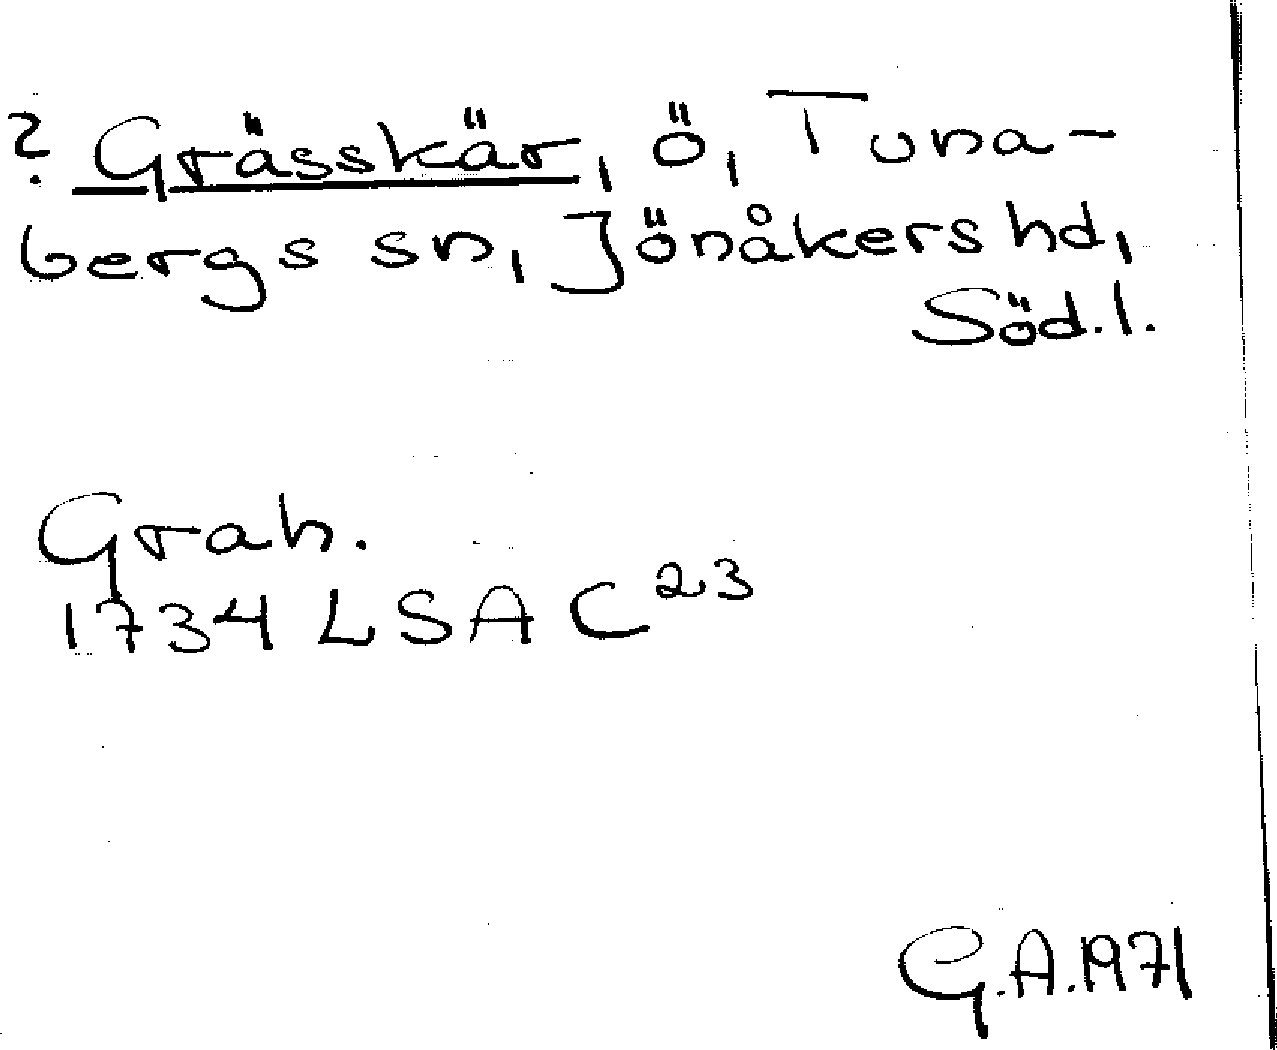 ? Grässkär, ö, Tuna-
bergs sn, Jönåkers hd,
Söd.l.
Grah.
1734 LSA C 23
G.A.1971